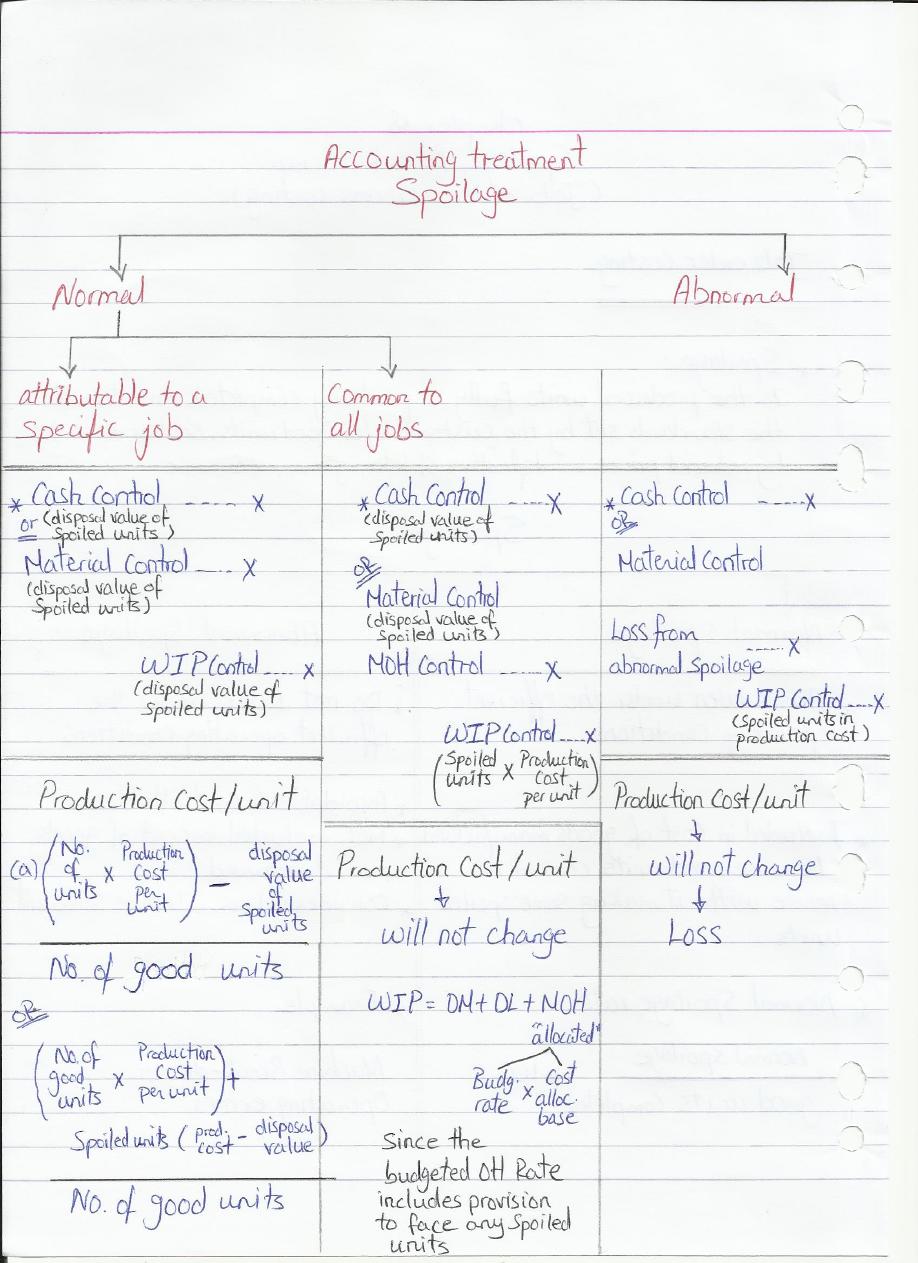 Accounting treatment
Spoilage
Normal
Abnormal
attributable to a
specific job
* Cash Control ---- X
or (disposal value of
Spoiled units)
Material Control ---- X
(disposal value of
Spoiled units)
WIP Control .... X
(disposal value of
Spoiled units)
Production Cost/unit
(a) (No. of units X Production Cost per unit) - disposal value of Spoiled units
No. of good units
OR
(No. of good units X Production Cost per unit) +
Spoiled units (prod. cost - disposal value)
No. of good units
Common to
all jobs
* Cash Control ....X
(disposal value of
Spoiled units)
OR
Material Control
(disposal value of
Spoiled units)
MOH Control ....X
WIP Control ....X
(Spoiled units X Production Cost per unit)
Production Cost/unit
will not change
WIP = DM + DL + MOH
"allocated"
Budg. rate X Cost alloc. base
Since the
budgeted OH Rate
includes provision
to face any Spoiled
units
* Cash Control ....X
OR
Material Control
Loss from
abnormal spoilage ....X
WIP Control ....X
(Spoiled units in
production cost)
Production Cost/unit
will not change
Loss